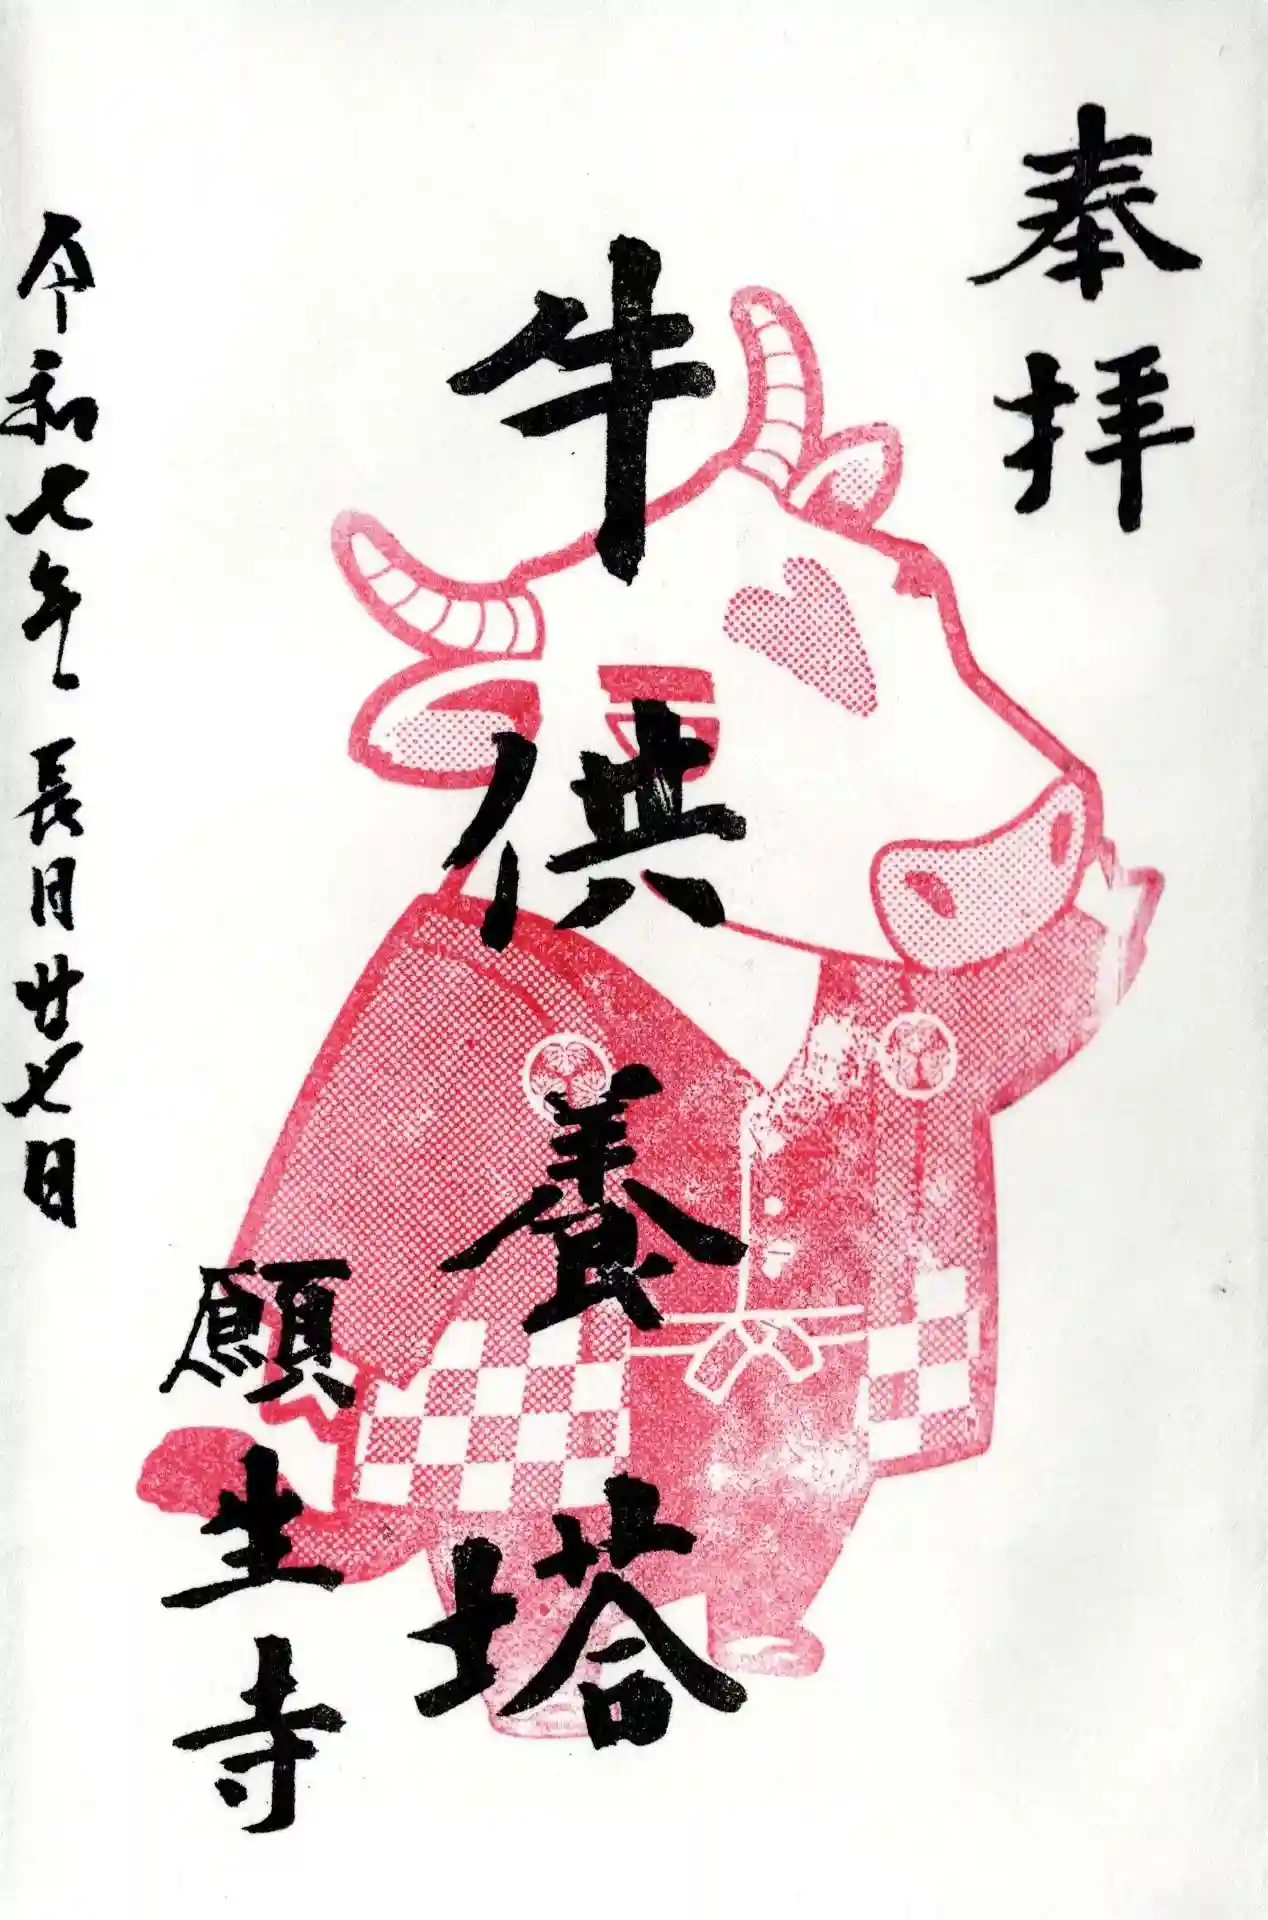 奉拝
牛供養塔
願生寺
令和七年長月廿七日